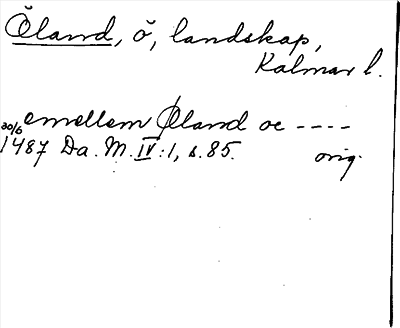 Öland, ö, landskap,
Kalmar l.
emellem Øland oc ----
30/6 1487 Da. M. IV:1, s. 85. orig.